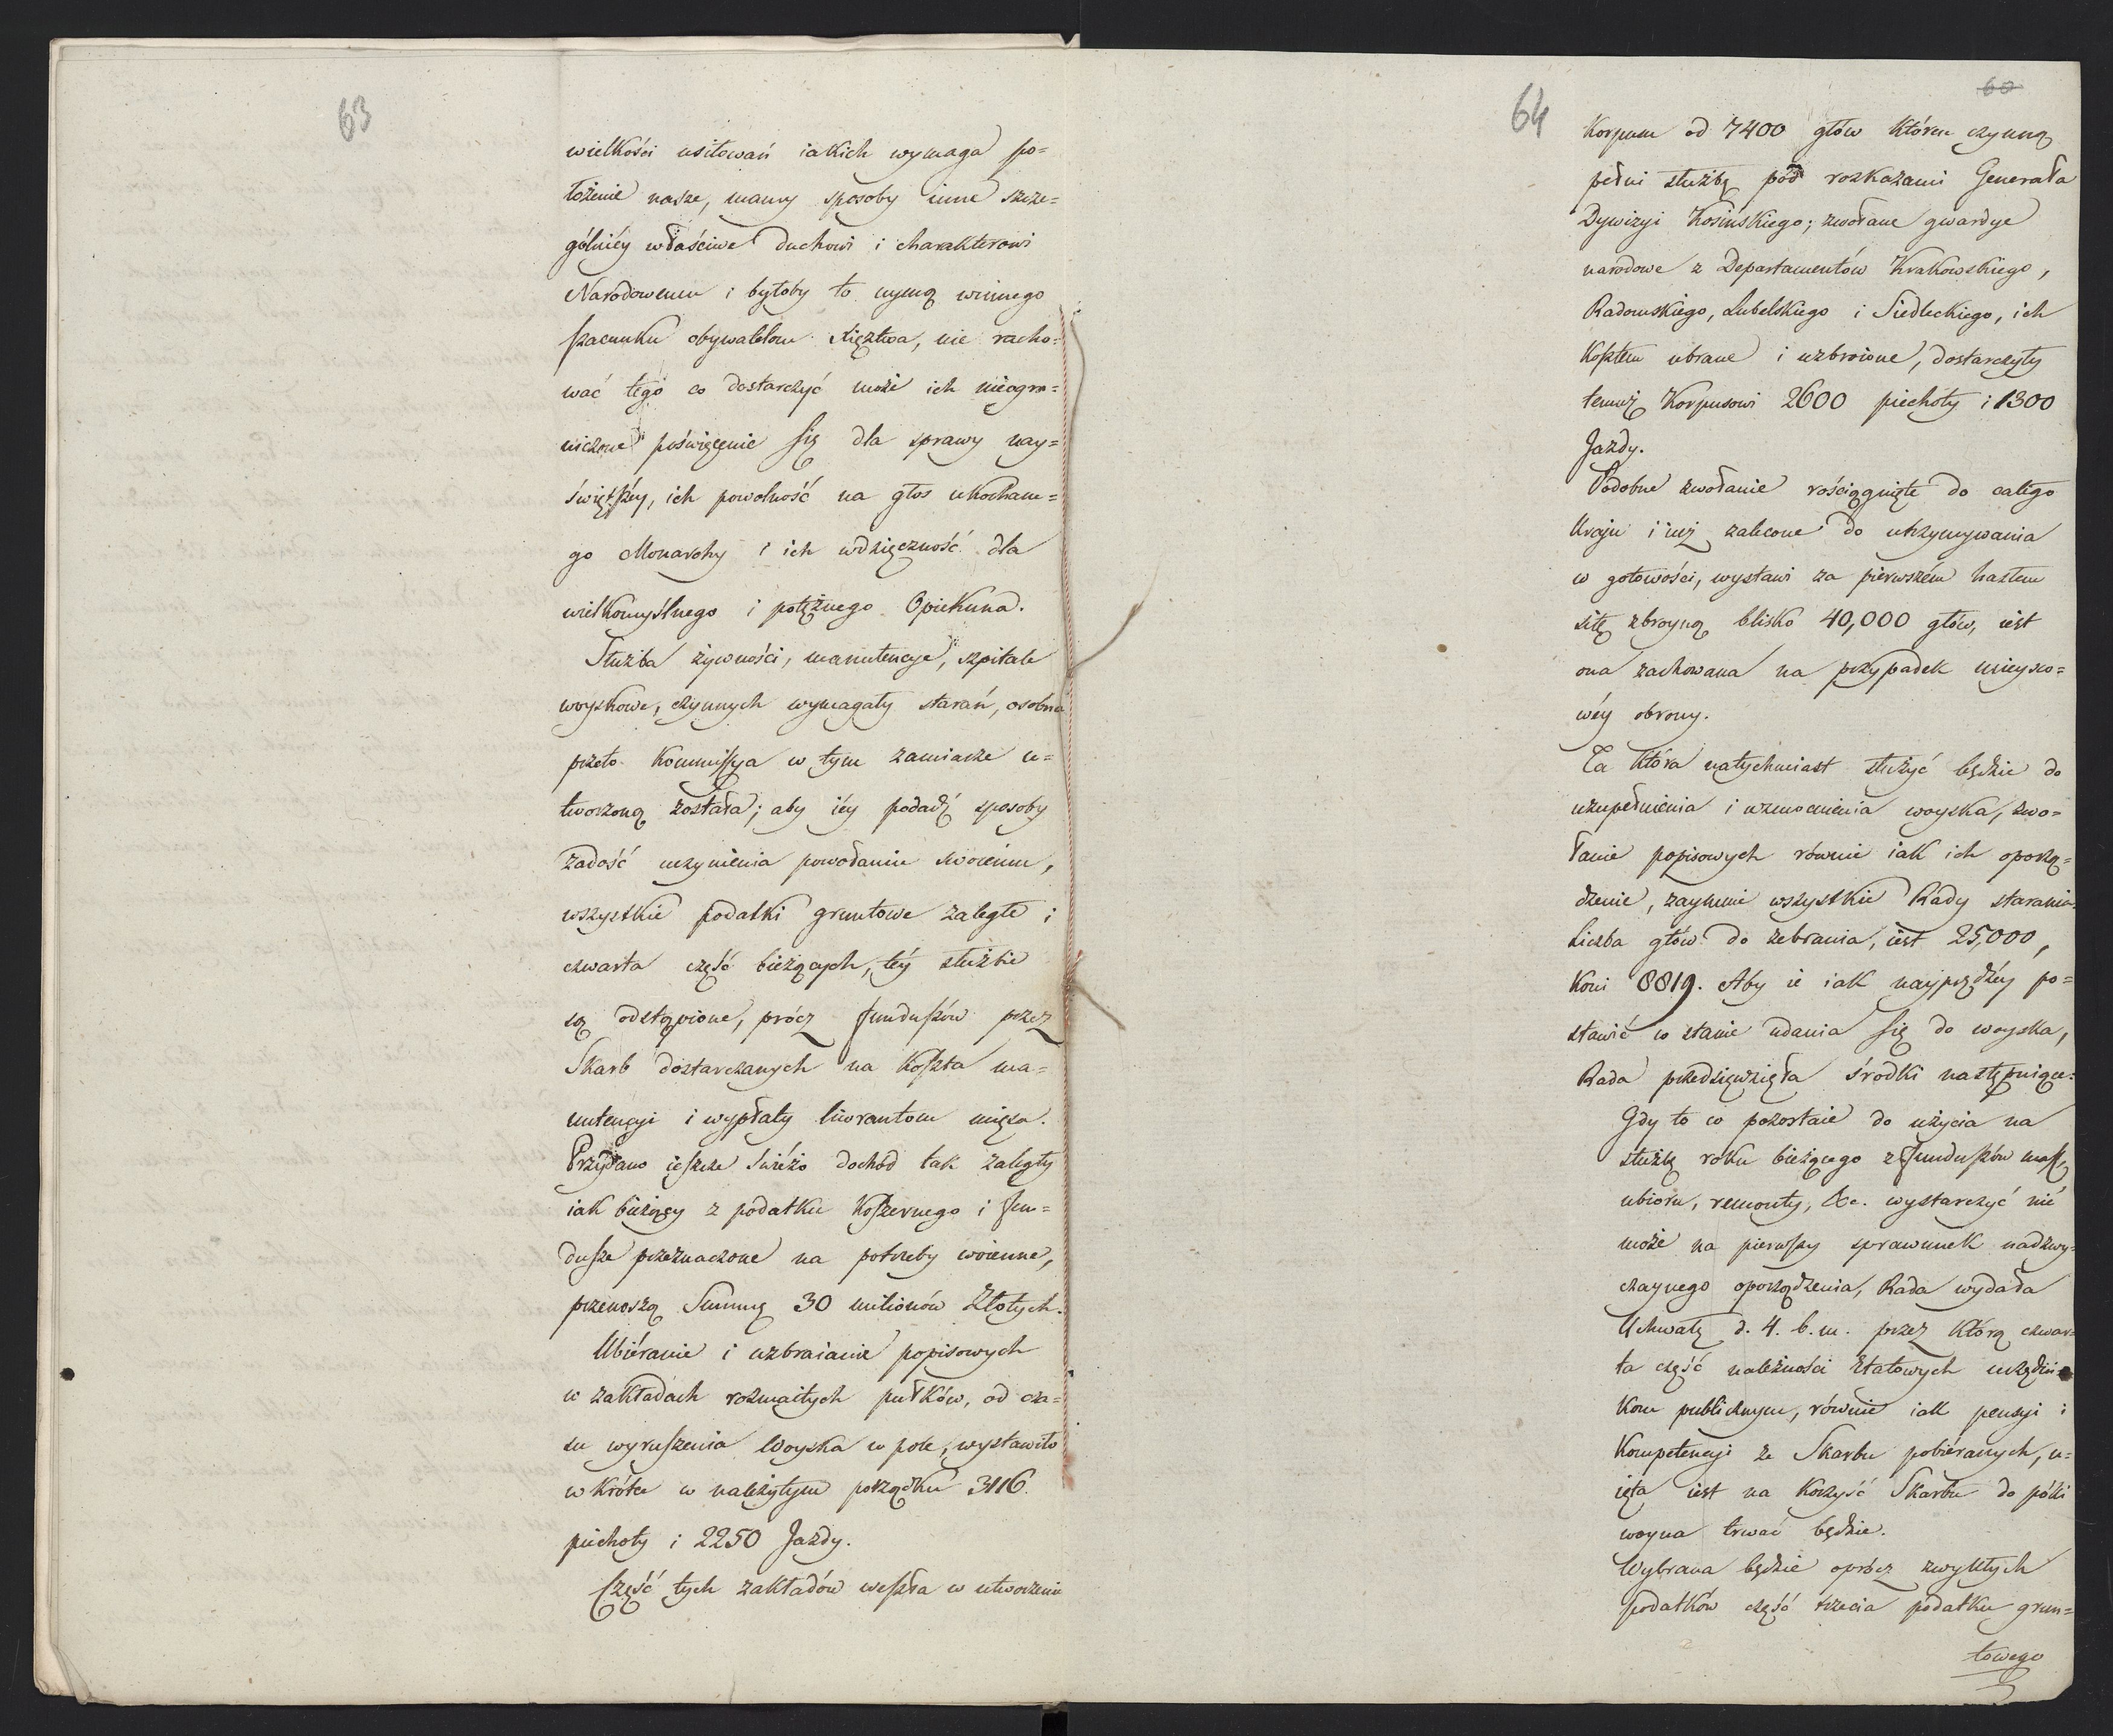 63
wielkości usiłowań iakich wymaga po=
łożenie nasze, mamy sposoby inne szcze=
gólniéy właściwe duchowi i charakterowi
Narodowemu i byłoby to uymą winnego
szacunku obywatelom Xięztwa, nie racho=
wać tego co dostarczyć może ich nieogra=
niczone poświęcenie się dla sprawy nay=
świętszéy, ich powolność na głos ukochane=
go Monarchy i ich wdzięczność dla
wielkomyślnego i potężnego Opiekuna.
Służba żywności, manutencye, szpitale
woyskowe, czynnych wymagały starań, osobna
przeto Kommissya w tym zamiarze u=
tworzoną została; aby iéy podadź sposoby
zadość uczynienia powołaniu swoiému,
wszystkie podatki gruntowe zaległe i
czwarta część bieżących, téy służbie
są odstąpione, prócz funduszów przez
Skarb dostarczanych na koszta ma=
nutencyi i wypłaty liwerantom mięsa.
Przydano ieszcze świéżo dochód tak zaległy
iak bieżący z podatku Koszernego i fun=
dusze przeznaczone na potrzeby woienne,
przenoszą Summę 30 milionów Złotych.
Ubiéranie i uzbraianie popisowych
w zakładach rozmaitych pułków, od cza=
su wyruszenia Woyska w pole, wystawiło
w krótce w należytym porządku 3116
piechoty i 2250 Jazdy.
Część tych zakładów weszła w utworzenie
64
60
Korpusu od 7400 głów którem czynną
pełni służbę pod rozkazami Generała
Dywizyi Kosińskiego; zwołane gwardye
narodowe z Departamentów Krakowskiego,
Radomskiego, Lubelskiego i Siedleckiego, ich
kosztem ubrane i uzbroione, dostarczyły
temuż Korpusowi 2600 piechoty i 1300
Jazdy.
Podobne zwołanie rościągnięte do całego
Kraju i iuż zalecone do utrzymywania
w gotowości, wystawi za pierwszém hasłem
siłę zbroyną blisko 40,000 głów, iest
ona zachowana na przypadek mieysco=
wéy obrony.
Ta która natychmiast służyć będzie do
uzupełnienia i wzmocnienia woyska, zwo=
łanie popisowych równie iak ich oporzą=
dzenie, zaymuie wszystkie Rady starania.
Liczba głów do zebrania, iest 25,000,
Koni 8819. Aby ie iak nayprędzéy po=
stawić w stanie udania się do woyska,
Rada przedsięwzięła środki następuiące:
Gdy to co pozostaie do użycia na
służbę roku bieżącego z funduszów massy
ubioru, remonty, &c. wystarczyć nie
może na pierwszy sprawunek nadzwy=
czaynego oporządzenia, Rada wydała
Uchwałę d. 4. b. m. przez którą czwar=
ta część należności Etatowych urzędni=
kom publicznym, równie iak pensyi i
Kompetencyi ze Skarbu pobiéranych, u=
ięta iest na korzyść Skarbu do póki
woyna trwać będzie.
Wybrana będzie oprócz zwykłych
podatków część trzecia podatku grun=
towego